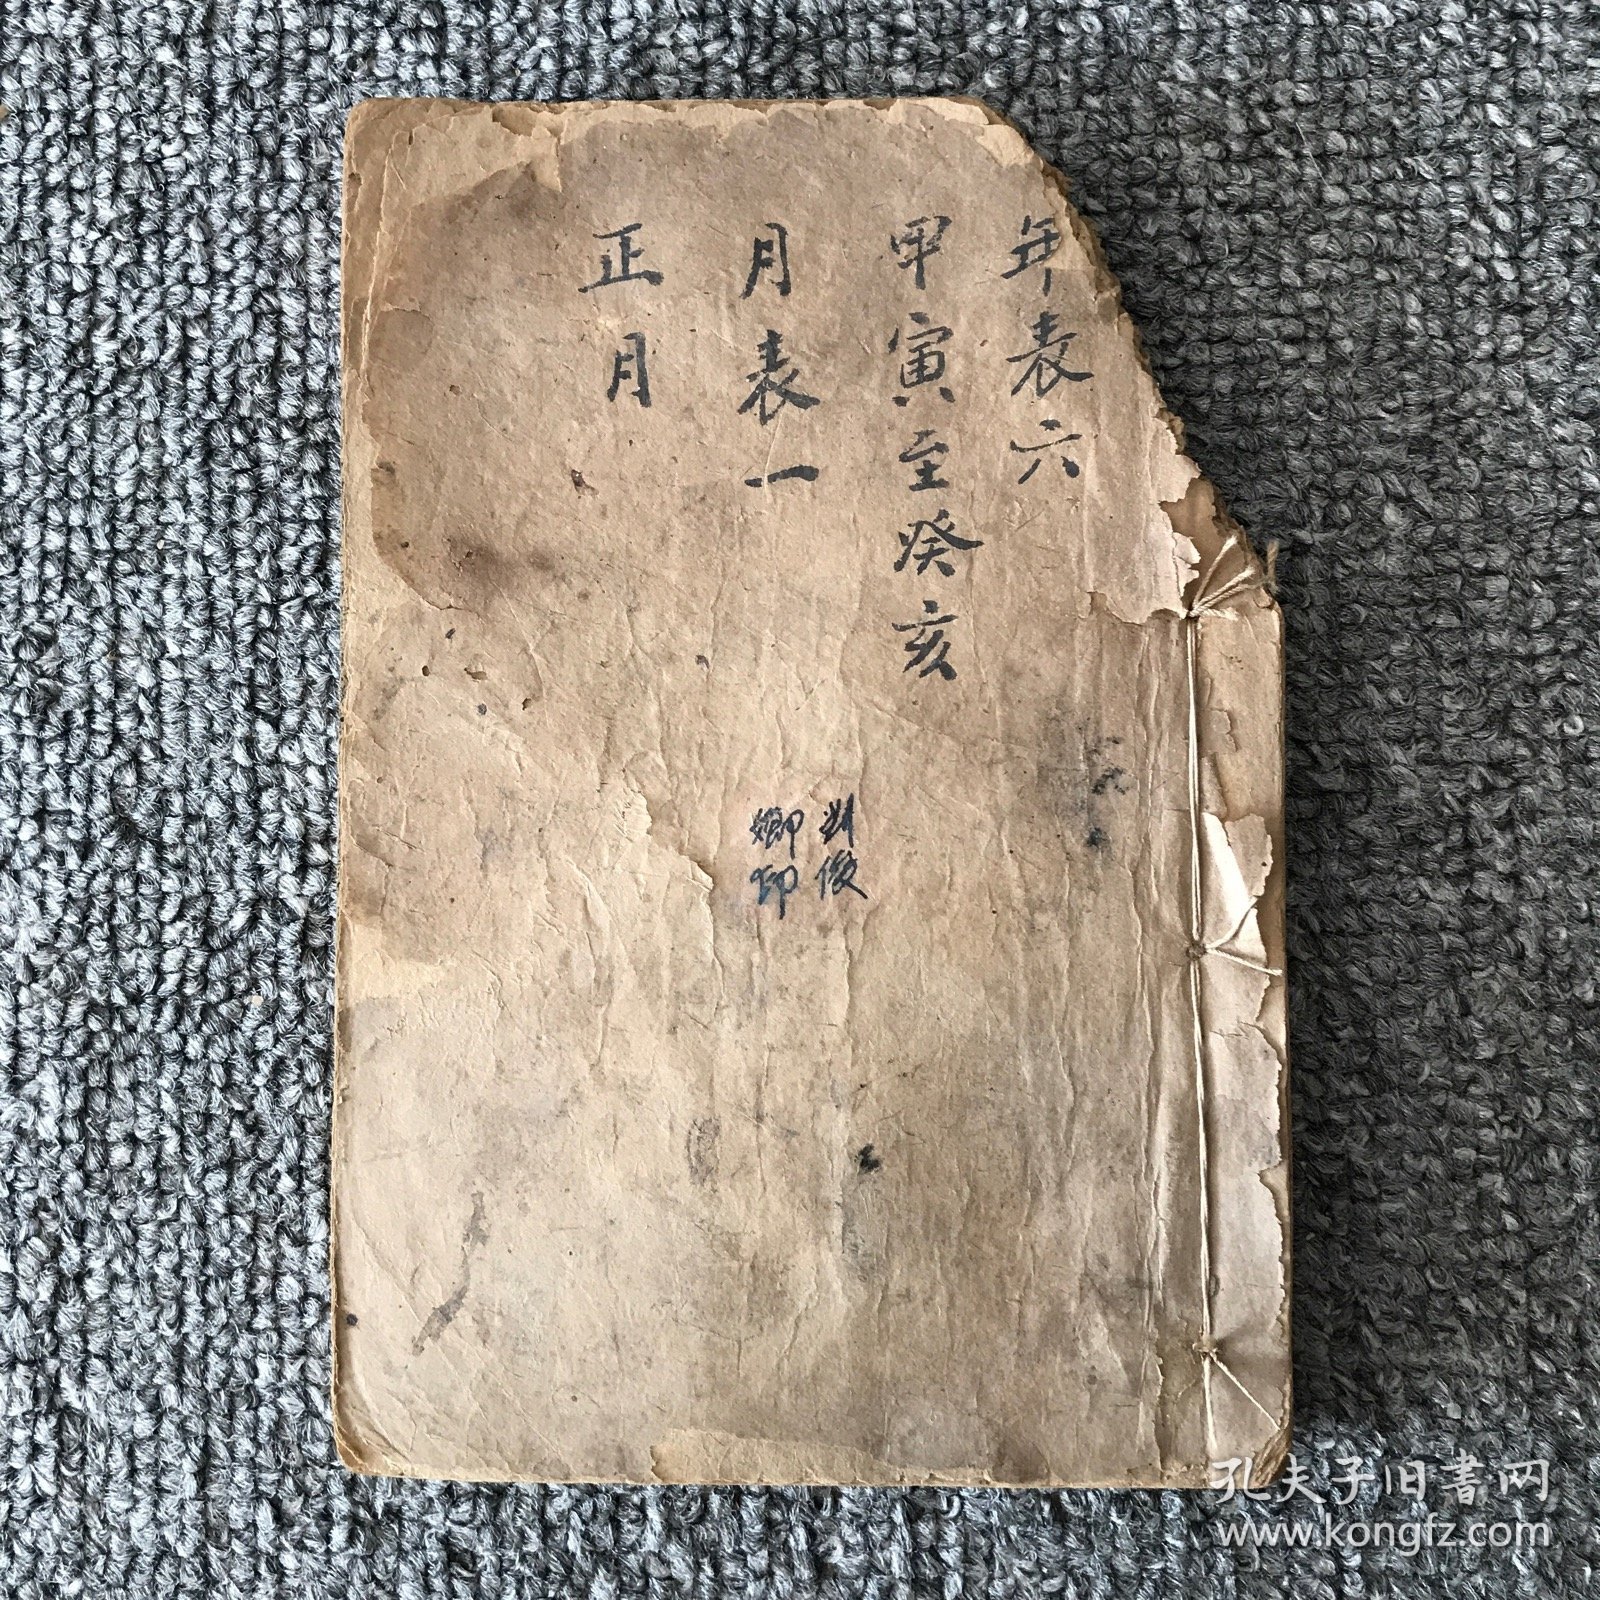 年表六
甲寅至癸亥
月表一
正月
刘俊
卿印
孔夫子旧書网
www.kongfz.com